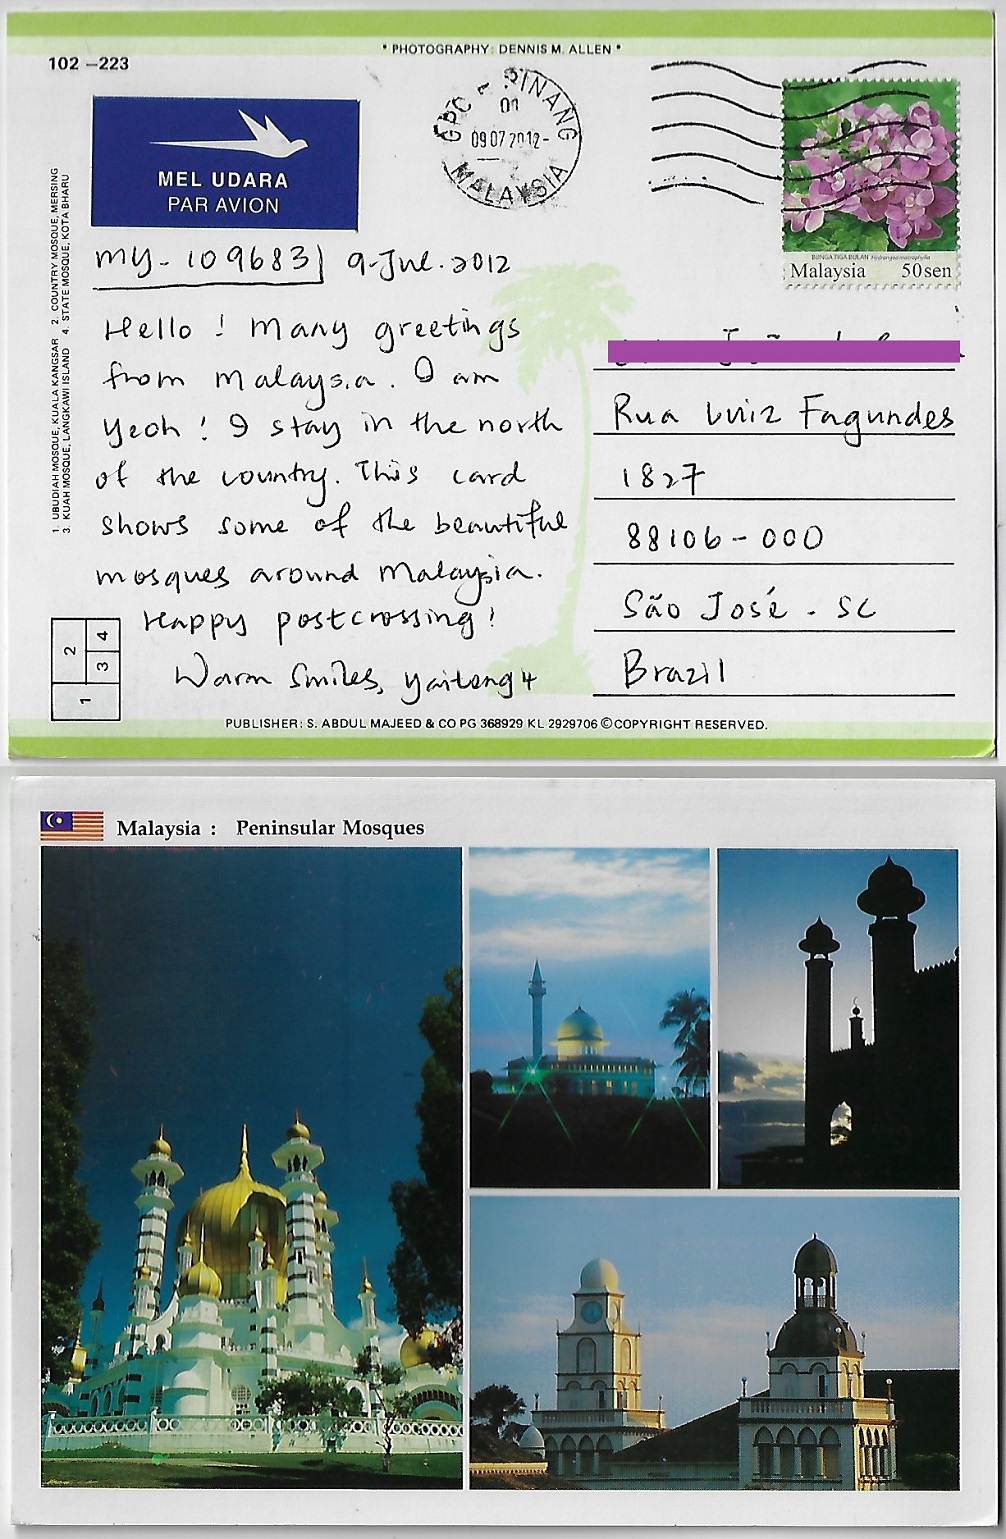 * PHOTOGRAPHY: DENNIS M. ALLEN *
102 –223
MEL UDARA
PAR AVION
GPO - PINANG
09 07 2012-
MALAYSIA
BUNGA TIGA BULAN Hydrangea macrophylla
Malaysia 50sen
1. UBUDIAH MOSQUE, KUALA KANGSAR 2. COUNTRY MOSQUE, MERSING
3. KUAH MOSQUE, LANGKAWI ISLAND 4. STATE MOSQUE, KOTA BHARU
MY-109683 9-Jul.2012
Hello! Many greetings
from Malaysia. I am
Yeoh! I stay in the north
of the country. This card
shows some of the beautiful
mosques around Malaysia.
Happy postcrossing!
Warm Smiles,
Rua Luiz Fagundes
1827
88106-000
São José - SC
Brazil
2 4
3
1
PUBLISHER: S. ABDUL MAJEED & CO PG 368929 KL 2929706 ©COPYRIGHT RESERVED.
Malaysia : Peninsular Mosques